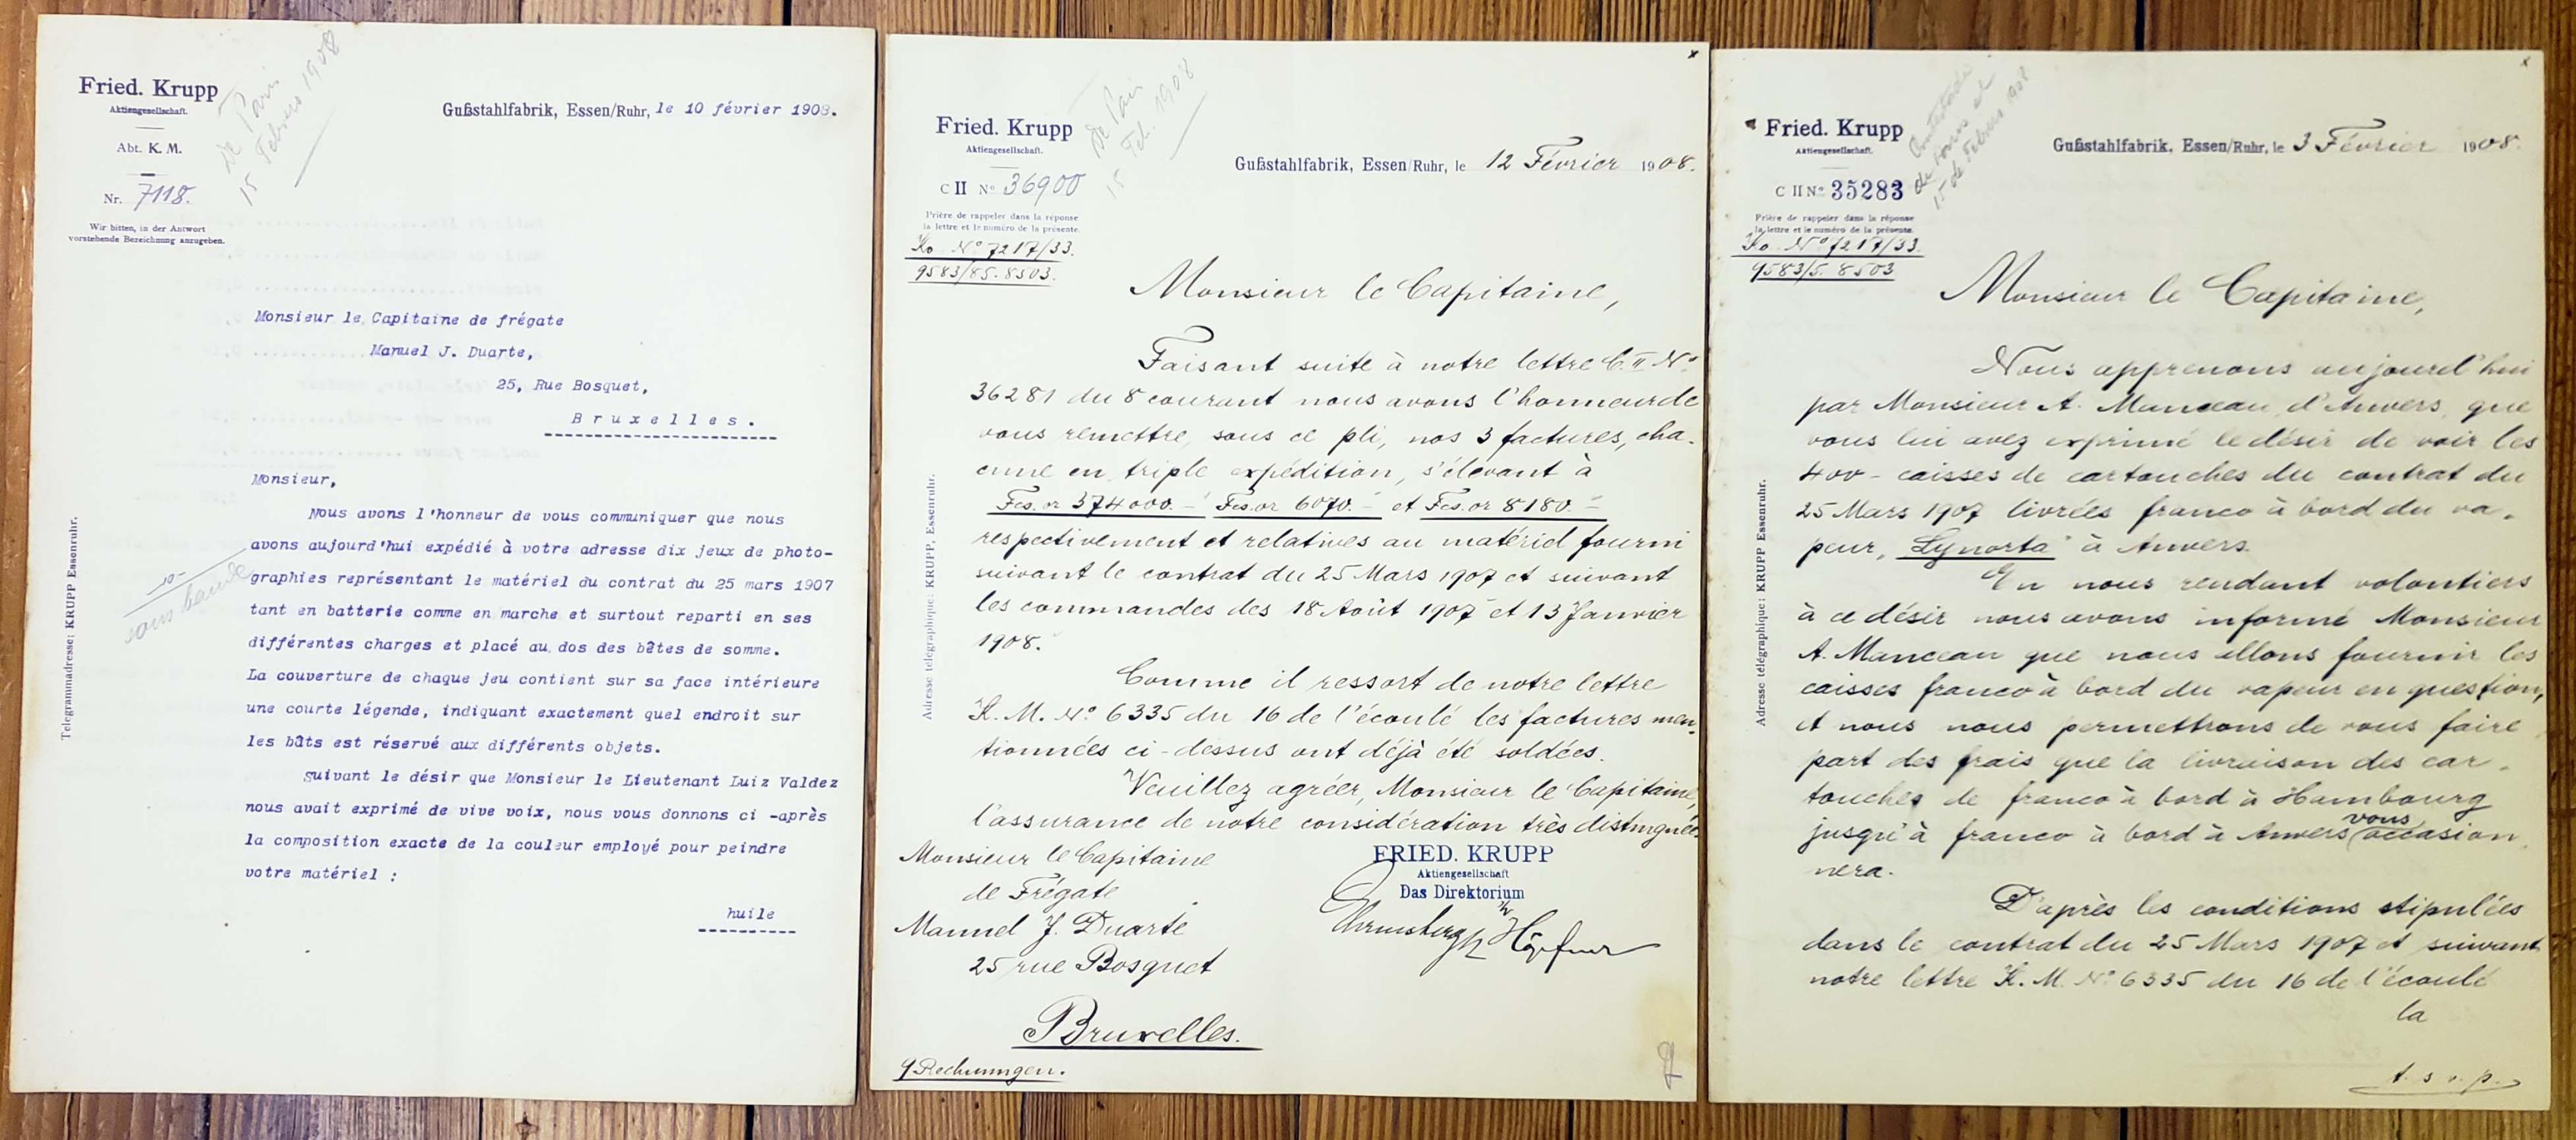 Fried. Krupp
Aktiengesellschaft.
Abt. K. M.
Nr. 7118.
Wir bitten, in der Antwort
vorstehende Bezeichnung anzugeben.
De Paris
15 Febrero 1908
Gußstahlfabrik, Essen/Ruhr, le 10 février 1908.
Monsieur le Capitaine de frégate
Manuel J. Duarte,
25, Rue Bosquet,
Bruxelles.
Monsieur,
Nous avons l'honneur de vous communiquer que nous
avons aujourd'hui expédié à votre adresse dix jeux de photo-
graphies représentant le matériel du contrat du 25 mars 1907
tant en batterie comme en marche et surtout reparti en ses
différentes charges et placé au dos des bêtes de somme.
La couverture de chaque jeu contient sur sa face intérieure
une courte légende, indiquant exactement quel endroit sur
les bâts est réservé aux différents objets.
Suivant le désir que Monsieur le Lieutenant Luiz Valdez
nous avait exprimé de vive voix, nous vous donnons ci -après
la composition exacte de la couleur employé pour peindre
votre matériel :
huile
10-
sous bande
Telegrammadresse: KRUPP Essenruhr.
Fried. Krupp
Aktiengesellschaft.
C II No 36900
Prière de rappeler dans la réponse
la lettre et le numéro de la présente.
Ko No 7217/33.
9583/85. 8503.
De Paris
15 Feb. 1908
Gußstahlfabrik, Essen/Ruhr, le 12 Février 1908.
Monsieur le Capitaine,
Faisant suite à notre lettre C. II No
36281 du 8 courant nous avons l'honneur de
vous remettre, sous ce pli, nos 3 factures, cha-
cune en triple expédition, s'élevant à
Fcs. or 374000.- Fcs. or 6070.- et Fcs. or 8180.-
respectivement et relatives au matériel fourni
suivant le contrat du 25 Mars 1907 et suivant
les commandes des 18 Août 1907 et 13 Janvier
1908.
Comme il ressort de notre lettre
K. M. No 6335 du 16 de l'écoulé les factures men-
tionnées ci-dessus ont déjà été soldées.
Veuillez agréer, Monsieur le Capitaine,
l'assurance de notre considération très distinguée.
FRIED. KRUPP
Aktiengesellschaft
Das Direktorium
Monsieur le Capitaine
de Frégate
Manuel J. Duarte
25 rue Bosquet
Bruxelles.
9 Rechnungen.
Adresse télégraphique: KRUPP, Essenruhr.
Fried. Krupp
Aktiengesellschaft.
C II No 35283
Prière de rappeler dans la réponse
la lettre et le numéro de la présente.
Ko No 7217/33.
9583/5. 8503
15 de Febrero 1908
Gußstahlfabrik, Essen/Ruhr, le 3 Février 1908.
Monsieur le Capitaine,
Nous apprenons aujourd'hui
par Monsieur A. Manceau d'Anvers, que
vous lui avez exprimé le désir de voir les
400 - caisses de cartouches du contrat du
25 Mars 1907 livrées franco à bord du va-
peur, "Lynorta" à Anvers.
En nous rendant volontiers
à ce désir nous avons informé Monsieur
A. Manceau que nous allons fournir les
caisses franco à bord du vapeur en question,
et nous nous permettrons de vous faire
part des frais que la livraison des car-
touches de franco à bord à Hambourg
jusqu'à franco à bord à Anvers vous occasion-
nera.
D'après les conditions stipulées
dans le contrat du 25 Mars 1907 et suivant
notre lettre K. M. No 6335 du 16 de l'écoulé
la
t. s. v. p.
Adresse télégraphique: KRUPP Essenruhr.